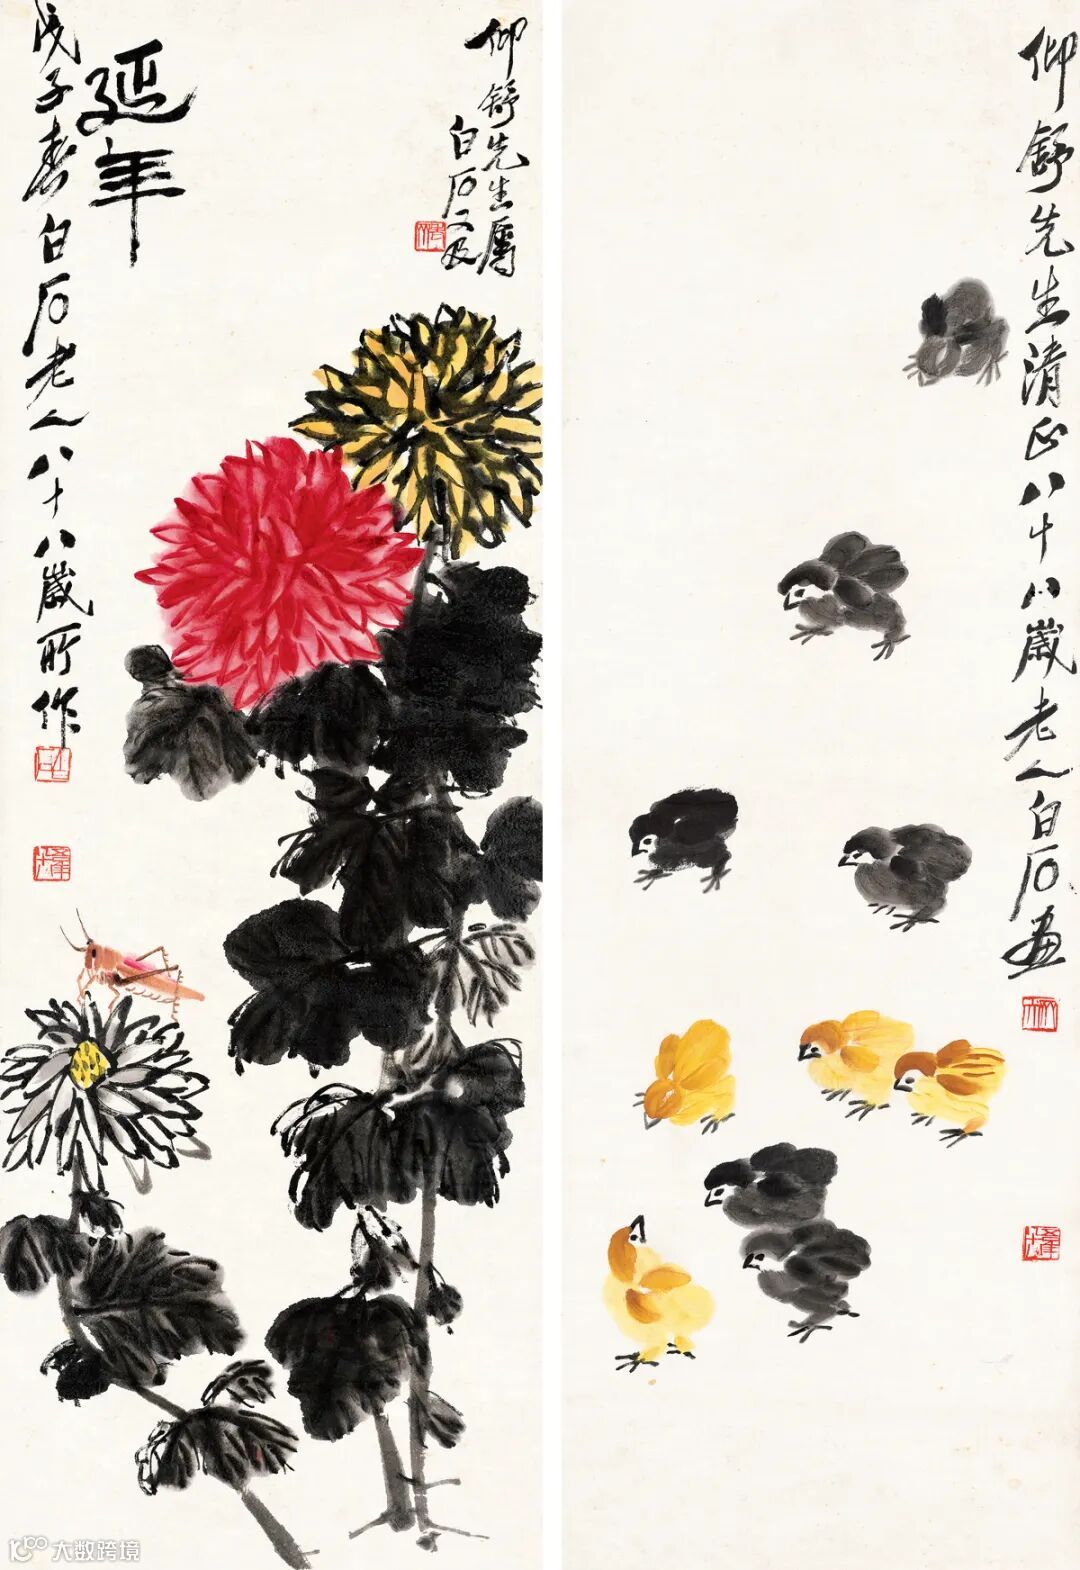 延年
戊子春白石老人八十八歲所作
仰舒先生屬
白石又及
仰舒先生清正八十八歲老人白石画
大数跨境